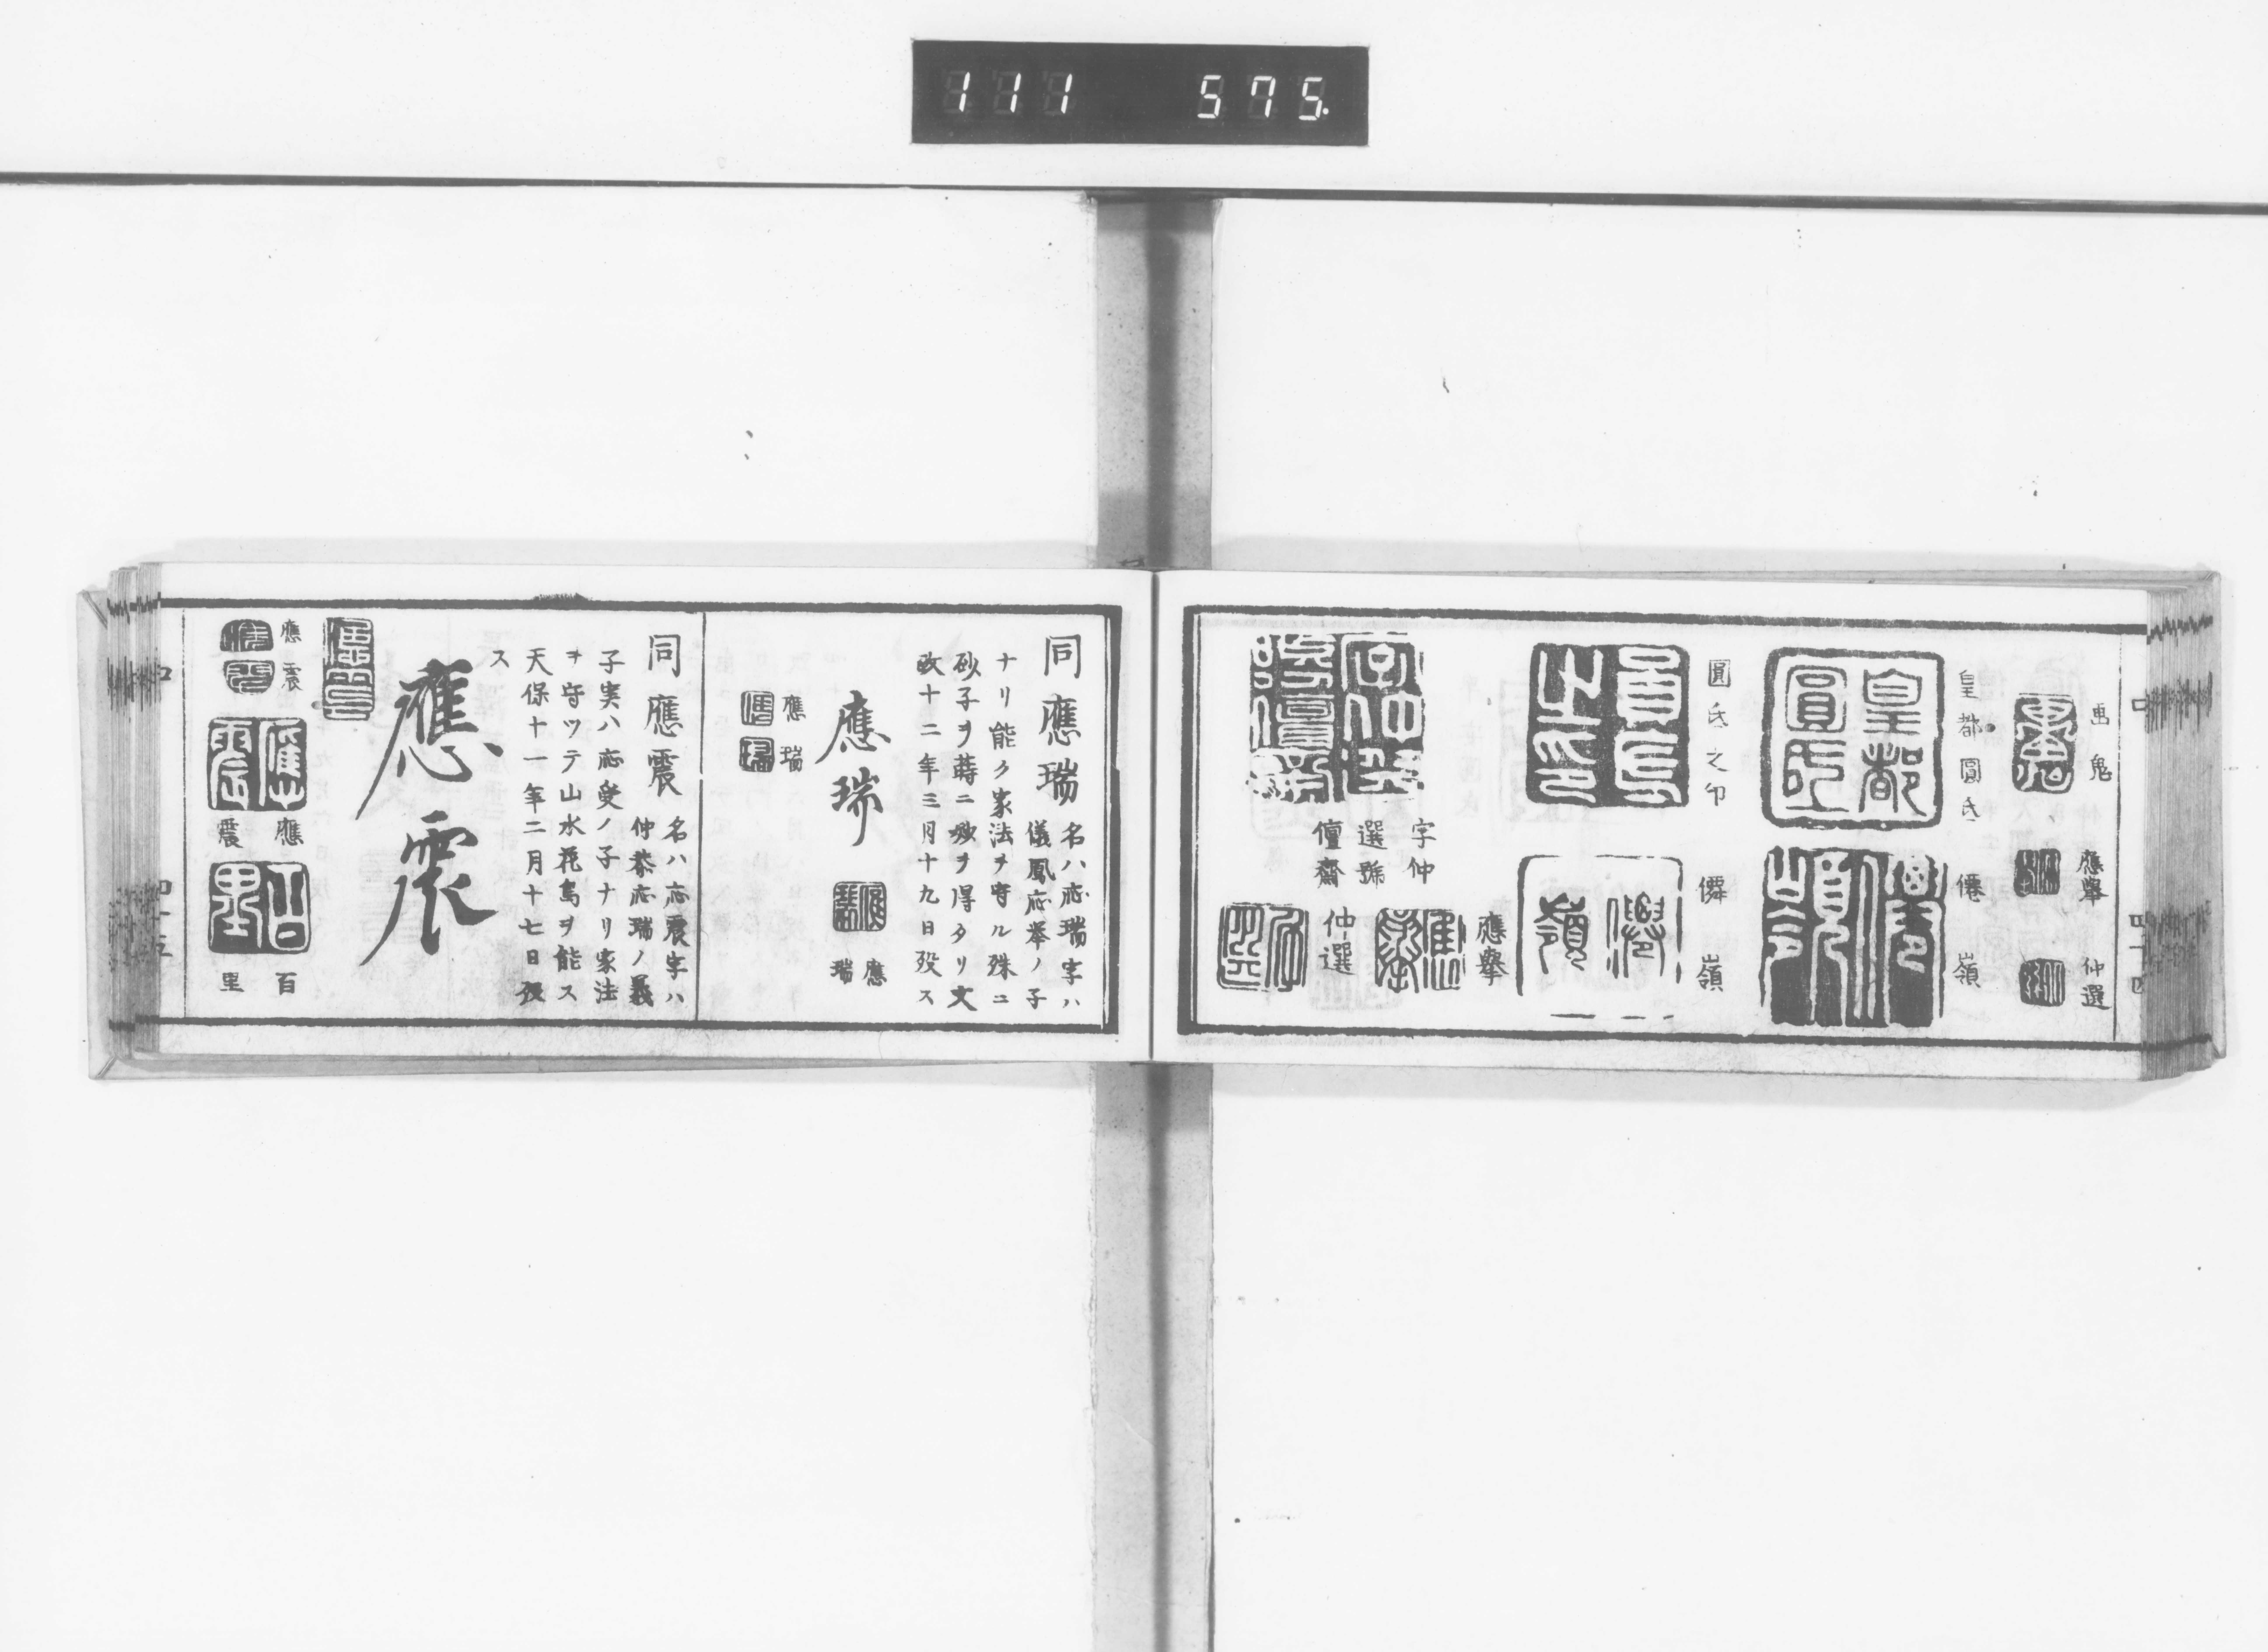 111 575.
画鬼
應擧
仲選
皇都圓氏
皇都圓氏
僊嶺
圓氏之印
僲嶺
字仲
選號
僊齋
應擧
仲選
四十四
同應瑞
名ハ応瑞字ハ
儀鳳応挙ノ子
ナリ能ク家法ヲ守ル殊ニ
砂子ヲ蒔ニ妙ヲ得タリ文
政十二年三月十九日歿ス
應瑞
應瑞
應瑞
同應震
名ハ応震字ハ
仲恭応瑞ノ義
子実ハ応受ノ子ナリ家法
ヲ守ツテ山水花鳥ヲ能ス
天保十一年二月十七日歿
ス
應震
應震
應震
應震
百里
百里
四十五